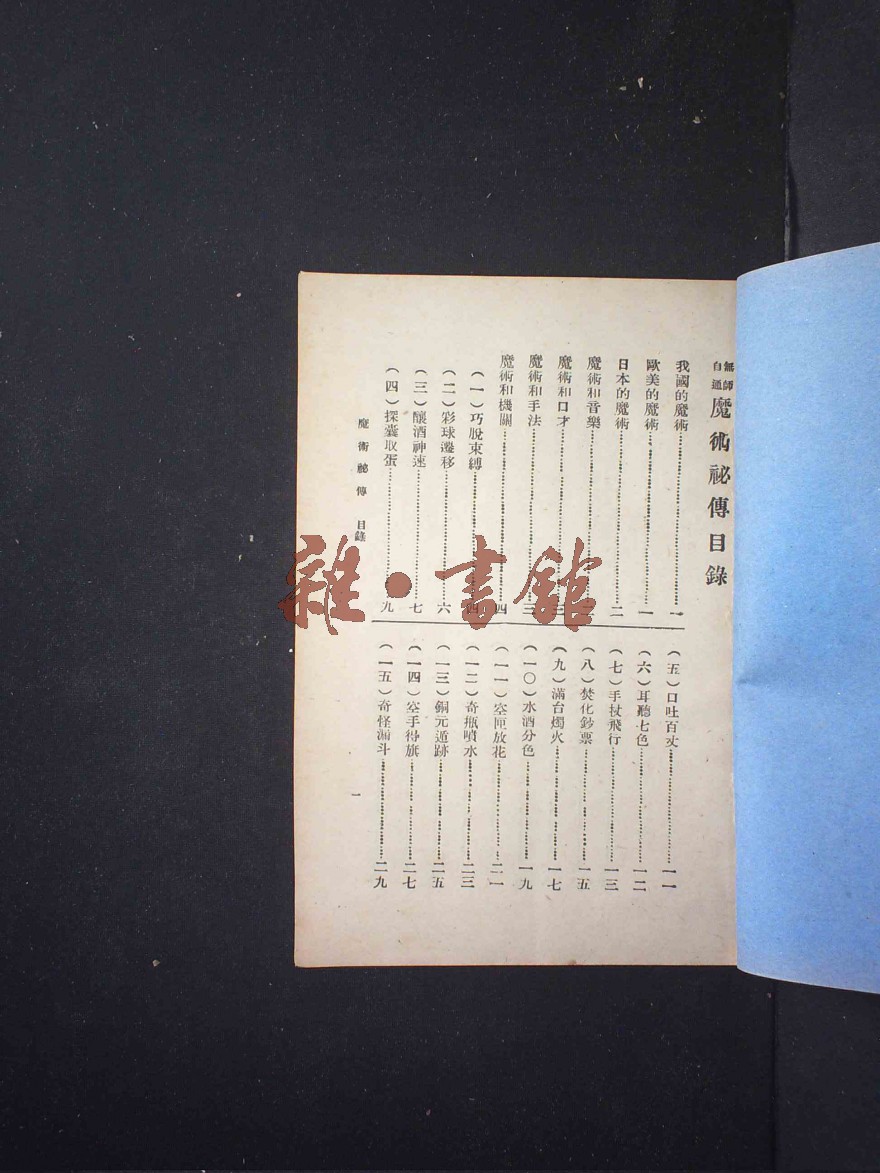 無師自通 魔術祕傳目錄
我國的魔術……一
歐美的魔術……一
日本的魔術……二
魔術和音樂……
魔術和口才……三
魔術和手法……三
魔術和機關……四
(一)巧脫束縛……四
(二)彩球遷移……六
(三)釀酒神速……七
(四)探囊取蛋……九
(五)口吐百丈……一一
(六)耳聽七色……一二
(七)手杖飛行……一三
(八)焚化鈔票……一五
(九)滿台燭火……一七
(一〇)水酒分色……一九
(一一)空匣放花……二一
(一二)奇瓶噴水……二三
(一三)銅元遁跡……二五
(一四)空手得旗……二七
(一五)奇怪漏斗……二九
魔術祕傳 目錄
一
雜·書館